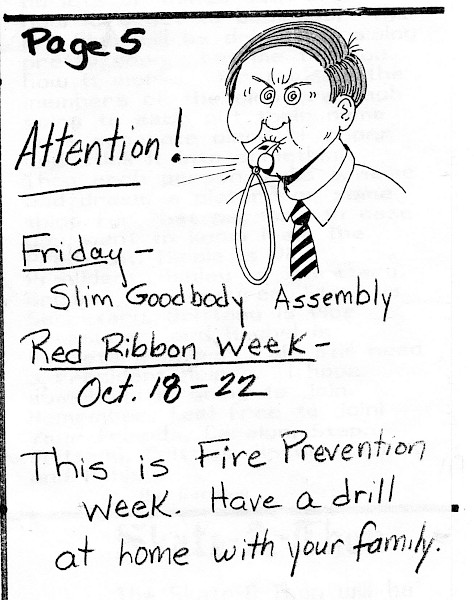 Page 5
Attention!
Friday -
Slim Goodbody Assembly
Red Ribbon Week -
Oct. 18 - 22
This is Fire Prevention
Week. Have a drill
at home with your family.